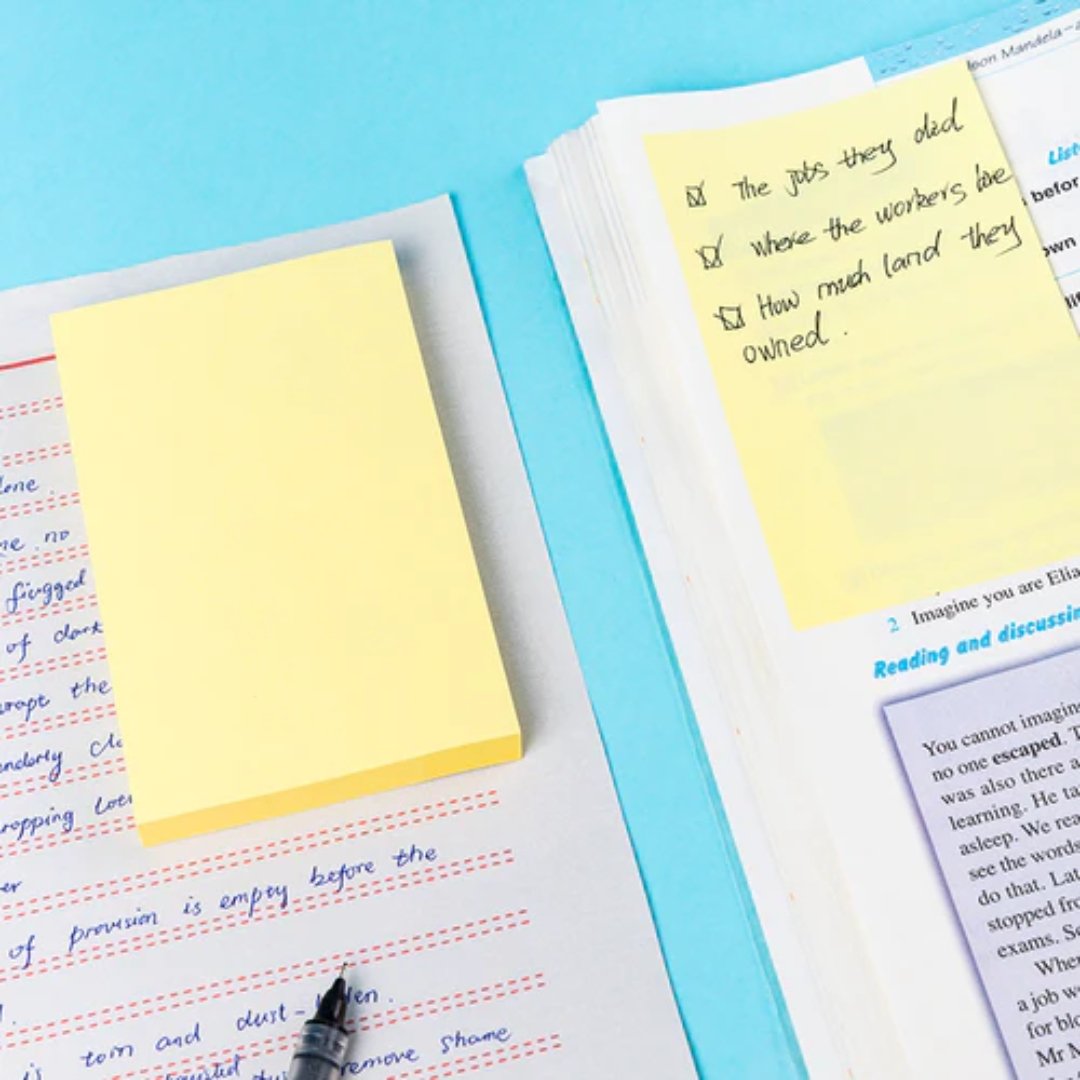 lone
no
of dark
the
of provision is empty before the
torn and dust-
remove shame
The jobs they did
where the workers live
How much land they
owned.
Mandela
List
befor
own
2 Imagine you are Elia
Reading and discussin
You cannot imagin
no one escaped. T
was also there a
learning. He ta
asleep. We rea
see the words
do that. Lat
stopped fro
exams. So
When
a job w
for blo
Mr M